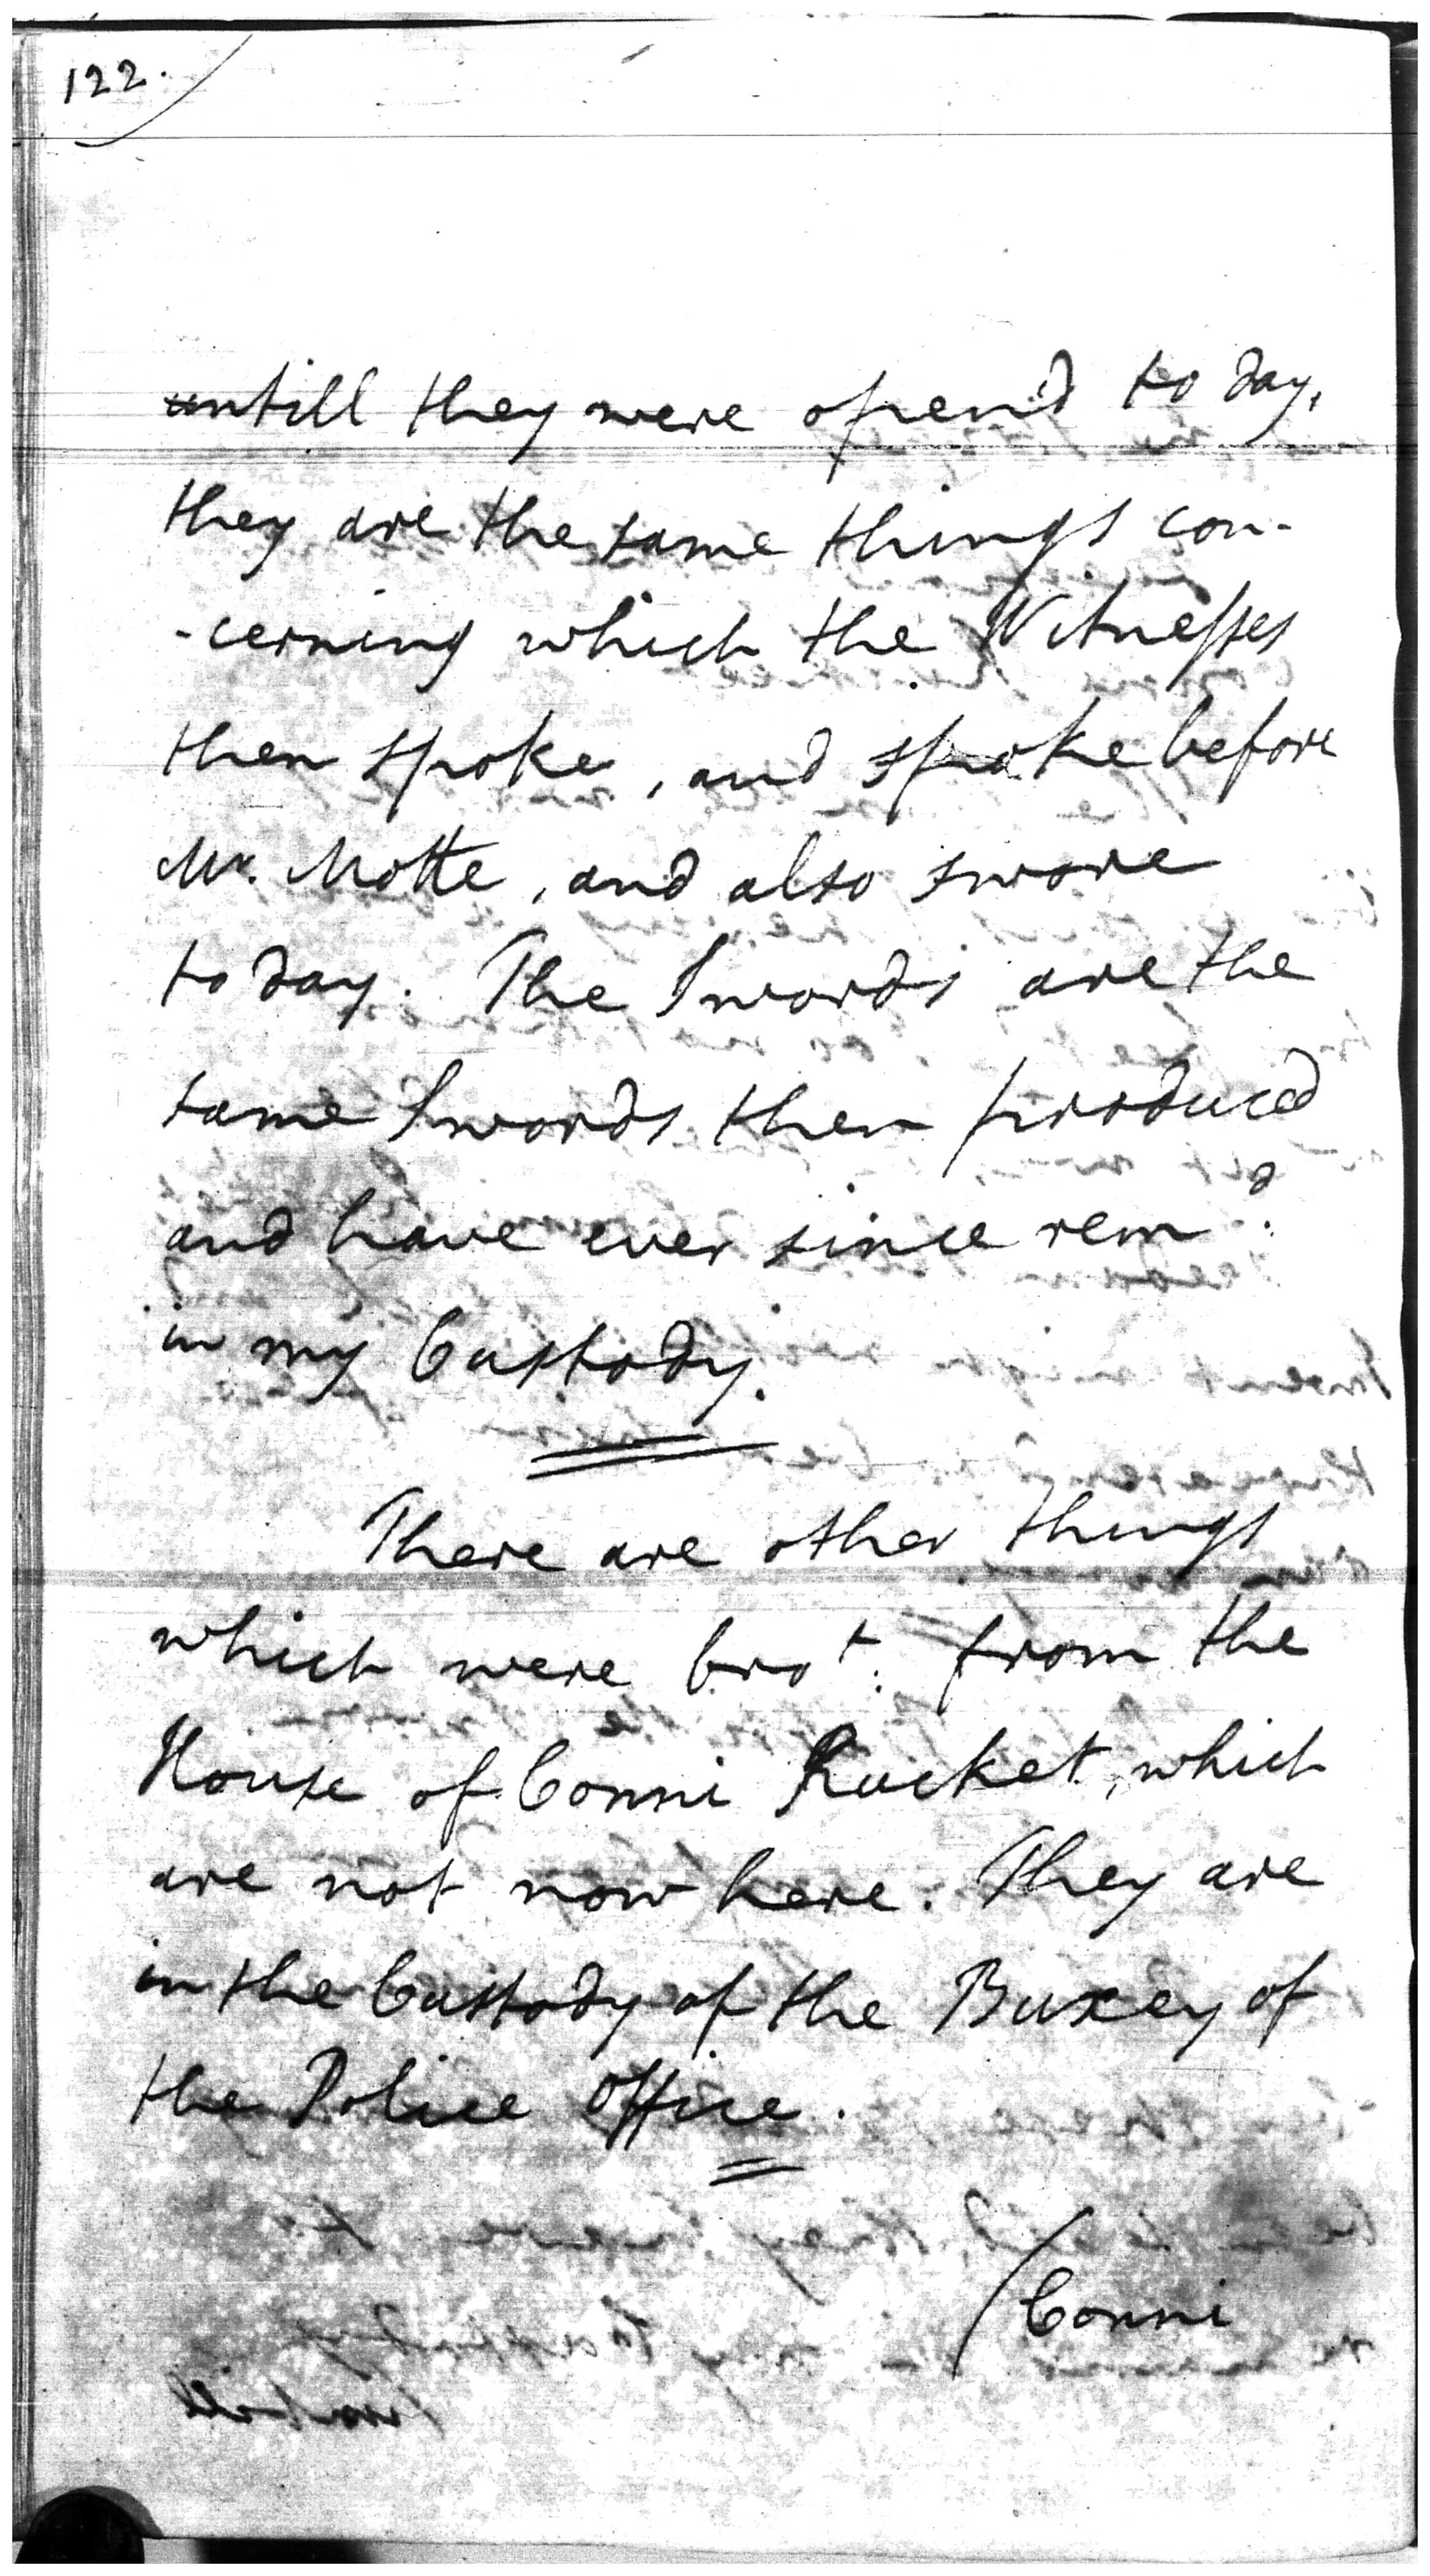 122.
untill they were open'd to day,
they are the same things con-
-cerning which the Witnesses
then spoke, and spoke before
Mr. Motte, and also swore
to day. The Swords are the
same Swords then produced
and have ever since rem:d
in my Custody.
There are other things
which were bro:t from the
House of Conni Rucket, which
are not now here. They are
in the Custody of the Buxey of
the Police Office.
/Conni